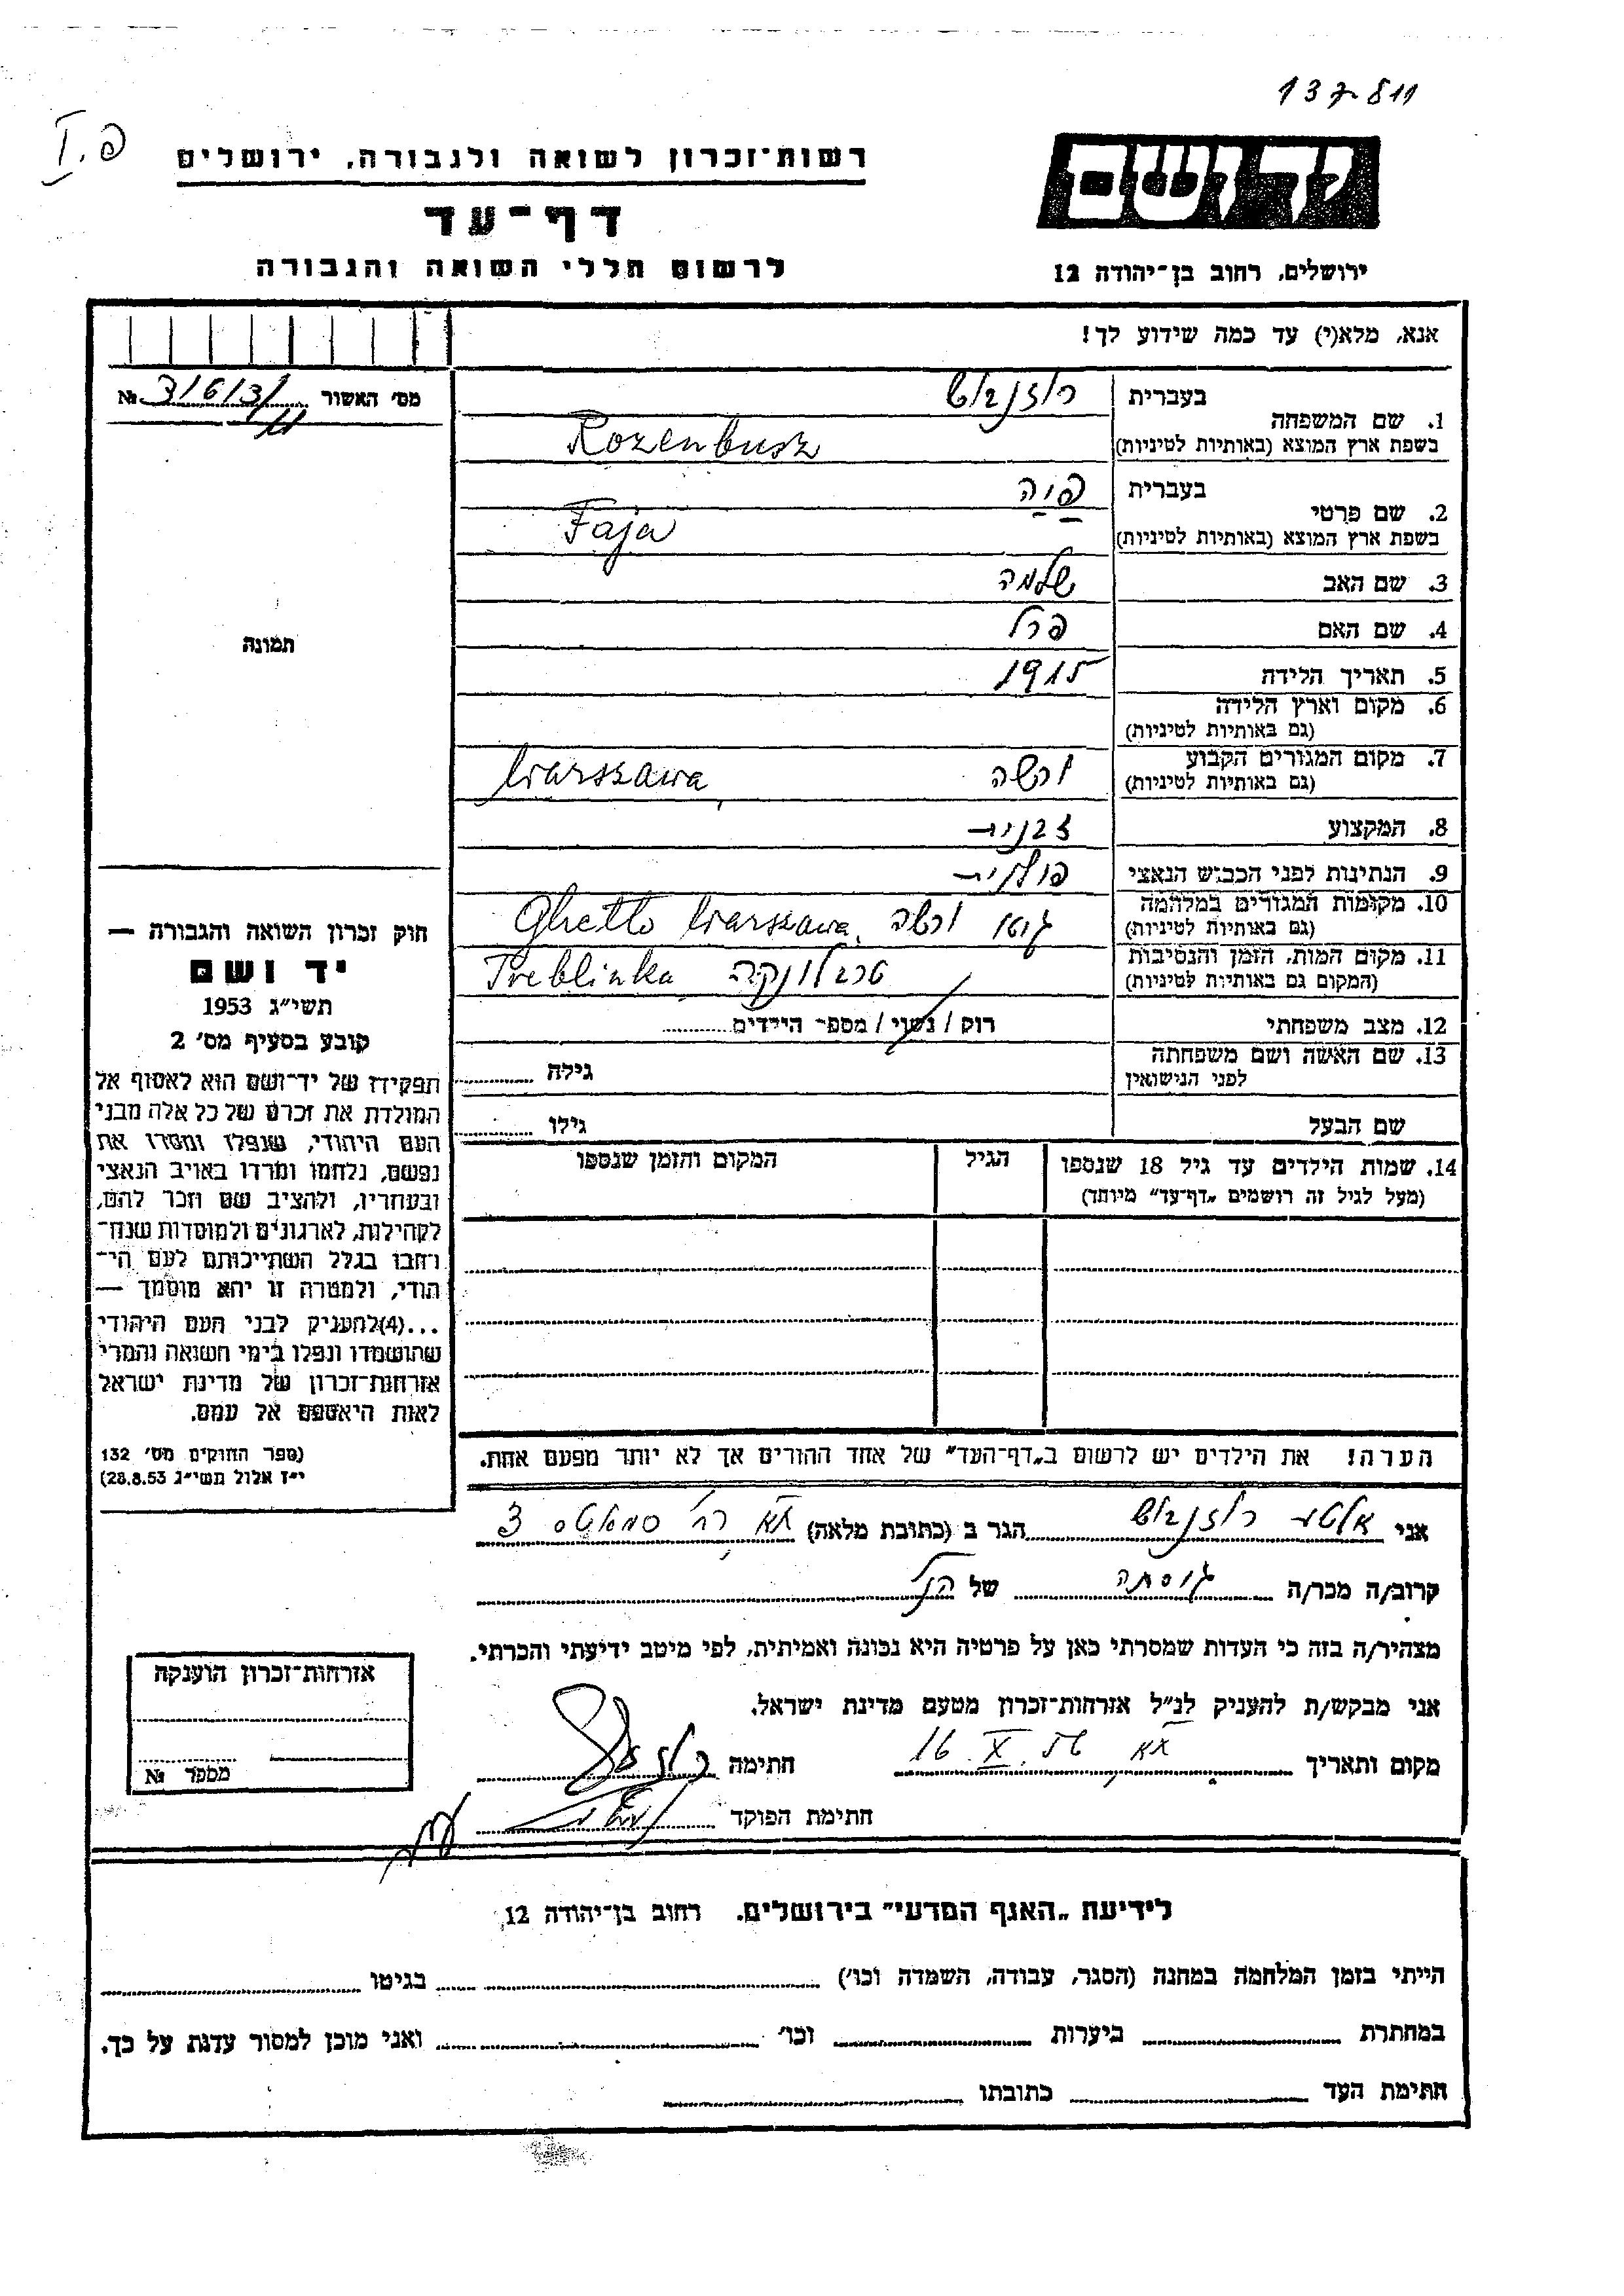 137811
פ. I
יד ושם
רשות־זכרון לשואה ולגבורה, ירושלים
דף־עד
לרשום חללי השואה והגבורה
ירושלים, רחוב בן־יהודה 12
אנא, מלא(י) עד כמה שידוע לך!
מס׳ האשור 31613/ №
1. שם המשפחה
בעברית רוזנבוש
בשפת ארץ המוצא (באותיות לטיניות) Rozenbusz
2. שם פרטי
בעברית פיה
בשפת ארץ המוצא (באותיות לטיניות) Faja
3. שם האב שלמה
4. שם האם פרל
תמונה
5. תאריך הלידה 1915
6. מקום וארץ הלידה
(גם באותיות לטיניות)
7. מקום המגורים הקבוע ורשה Warszawa
(גם באותיות לטיניות)
8. המקצוע זבנית
9. הנתינות לפני הכבוש הנאצי פולנית
10. מקומות המגורים במלחמה גטו ורשה, Ghetto Warszawa
(גם באותיות לטיניות)
11. מקום המות, הזמן והנסיבות טרבלינקה Treblinka
(המקום גם באותיות לטיניות)
12. מצב משפחתי רוק / נשוי / מספר הילדים
13. שם האשה ושם משפחתה גילה
לפני הנישואין
שם הבעל גילו
14. שמות הילדים עד גיל 18 שנספו הגיל המקום והזמן שנספו
(מעל לגיל זה רושמים „דף־עד” מיוחד)
חוק זכרון השואה והגבורה —
יד ושם
תשי״ג 1953
קובע בסעיף מס׳ 2
תפקידו של יד־ושם הוא לאסוף אל
המולדת את זכרם של כל אלה מבני
העם היהודי, שנפלו ומסרו את
נפשם, נלחמו ומרדו באויב הנאצי
ובעוזריו, ולהציב שם וזכר להם,
לקהילות, לארגונים ולמוסדות שנח־
רבו בגלל השתייכותם לעם הי־
הודי, ולמטרה זו יהא מוסמך —
...(4)להעניק לבני העם היהודי
שהושמדו ונפלו בימי השואה והמרי
אזרחות־זכרון של מדינת ישראל
לאות היאספם אל עמם.
(ספר החוקים מס׳ 132
י״ז אלול תשי״ג 28.8.53)
הערה! את הילדים יש לרשום ב„דף־העד” של אחד ההורים אך לא יותר מפעם אחת.
אני אלטר רוזנבוש הגר ב (כתובת מלאה) תא רח׳ סמאטס 3
קרוב/ה מכר/ה גיסתה של הנ״ל
מצהיר/ה בזה כי העדות שמסרתי כאן על פרטיה היא נכונה ואמיתית, לפי מיטב ידיעתי והכרתי.
אני מבקש/ת להעניק לנ״ל אזרחות־זכרון מטעם מדינת ישראל.
מקום ותאריך תא, 16. X. חתימה
חתימת הפוקד
אזרחות־זכרון הוענקה
מספר №
לידיעת „האגף המדעי” בירושלים, רחוב בן־יהודה 12
הייתי בזמן המלחמה במחנה (הסגר, עבודה, השמדה וכו׳) בגיטו
במחתרת ביערות וכו׳ ואני מוכן למסור עדות על כך.
חתימת העד כתובתו